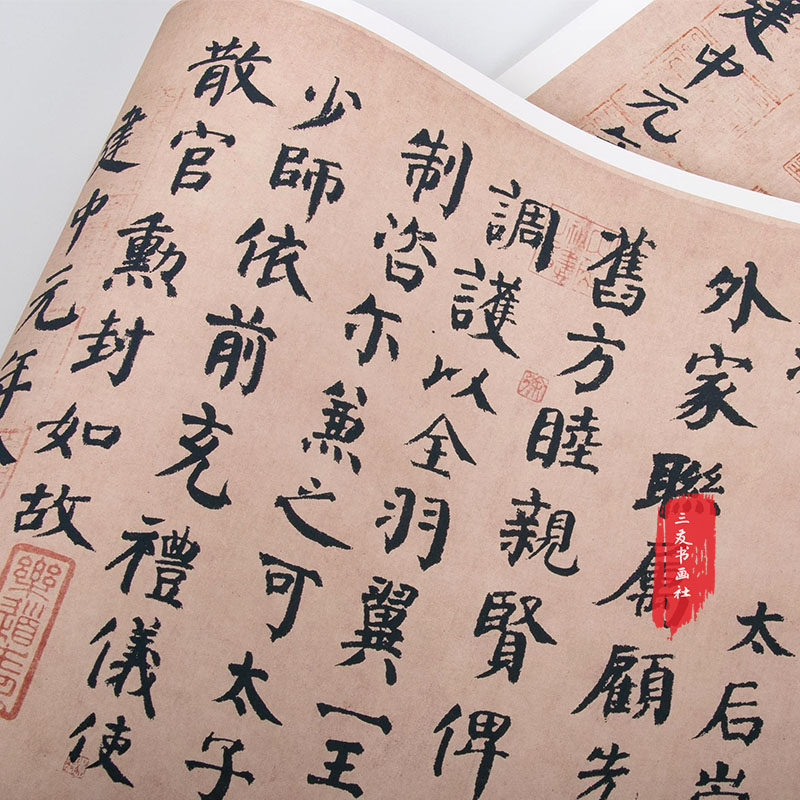 太后
外家聯屬顧先
舊方睦親賢俾
調護以全羽翼一王
制咨尔兼之可太子
少師依前充禮儀使
散官勳封如故
建中元年
建中元
三友书画社